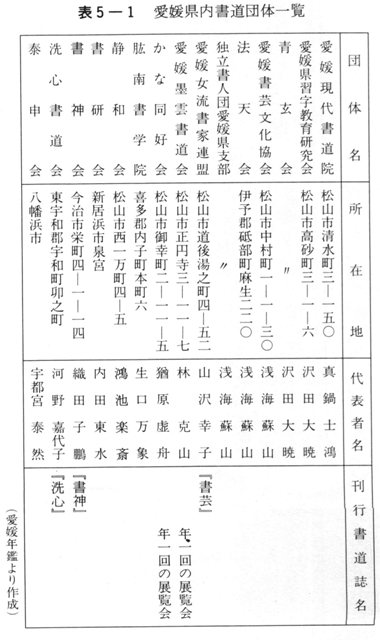 表5－1　愛媛県内書道団体一覧
団体名　所在地　代表者名　刊行書道誌名
愛媛現代書道院　松山市清水町三―一五〇　真鍋士鴻
愛媛県習字教育研究会　松山市高砂町三―一―六　沢田大暁
青玄会　〃　沢田大暁
愛媛書芸文化協会　松山市中村町一―一―三〇　浅海蘇山
法天会　伊予郡砥部町麻生二二〇　浅海蘇山
独立書人団愛媛県支部　〃　浅海蘇山
愛媛女流書家連盟　松山市道後湯之町四―五二　山沢幸子　『書芸』
愛媛墨雲書道会　松山市正円寺三―一一―七　林克山　年一回の展覧会
かな同好会　松山市御幸町二―一―五　猶原虚舟　年一回の展覧会
肱南書学院　喜多郡内子町本町六　生口万象
静和会　松山市西一万町四―五　鴻池楽斎
書研会　新居浜市泉宮　内田東水
書神会　今治市栄町四―一―一四　織田子鵬　『書神』
洗心書道会　東宇和郡宇和町卯之町　河野嘉代子　『洗心』
泰申会　八幡浜市　宇都宮泰然
（愛媛年鑑より作成）